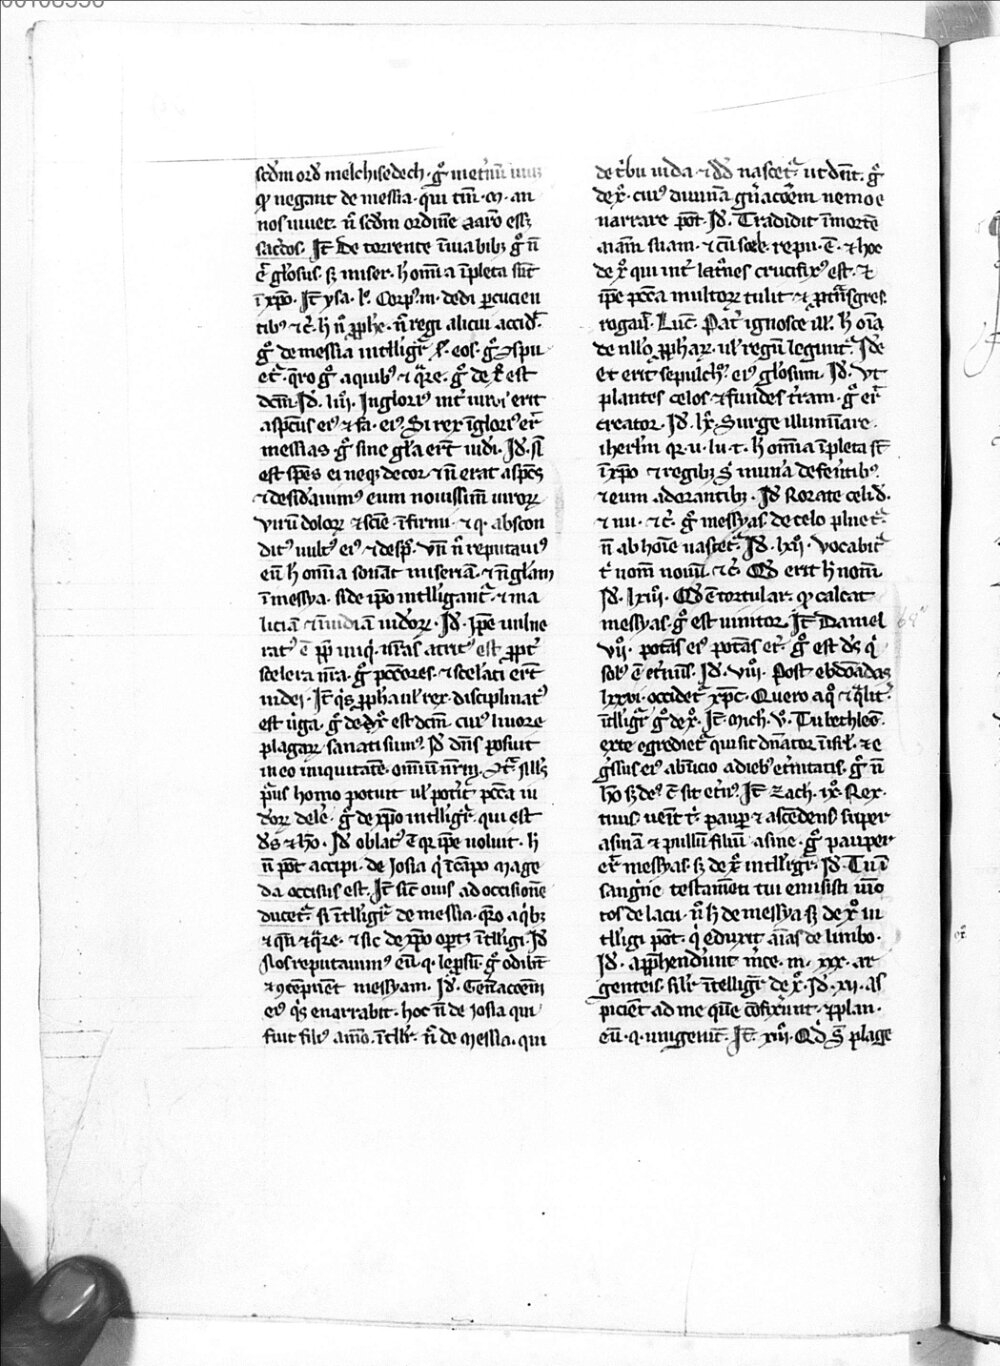 scd'm ord' melchisedech· g° inet'nū
q' negant de messia· qui tm̄· m· an
nos uiuet· n̄ scd'm ordinē aarō esse
sac'dos· Jt' De torrente ī uia bib; g° n̄
gl'osus· s; miser· h omīa īpleta sūt
ī xp̄o· Jt' ysa· l°· Corp' m̄· dedi p̄cucien
tib' ⁊ c̄· h n̄ p̄phe· n̄ regi alicui accid'·
g° de messia intelligr̄
q̄ro g° a quib' ⁊ q̄re· g° de x° est
dcm̄· Jd' liii· Inglori' int' uiros erit
aspect' ei' ⁊ fa· ei'· Si rex īglori' er̄
messias g° sine gl'a er̄t iudi· Jd' n̄
est spēs ei neq; decor ⁊ n̄ erat aspēs
⁊ desid'auim' eum nouissim̄ uiror;
virū dolor; ⁊ sciē· īfirmi· ⁊ q· abscon
dit' uult' ei' ⁊ desp̄· vn̄ n̄ reputauim'
eū h omīa sonāt miseriā· ⁊ n̄ gl'am
ī messya· si de ip̄o intelligant' ⁊ ma
liciā ⁊ īuidiā iudeor;· Jd' Ip̄e uulne
rat' ē pp̄ iniq· n̄ras atrit' est pp̄t'
scelera nr̄a· g° pccōres· ⁊ scel'ati er̄t
iudei· Jt' q's p̄pha ul' rex· disciplinat'
est uga· g° de x° est dcm̄· cui' liuore
plagar; sanati sum' Jd' dn̄s posuit
in eo iniquitatē· omniū nr̄m·
p̄us homo potuit ul' pot'it pccā iu
deor; delē· g° de xp̄o intelligr̄ qui est
d's ⁊ hō· Jd' oblat' ē qr ip̄e uoluit· h
n̄ pōt accipi· de Josia q' ī cāpo mage
da occisus est· Jt' sic ouis ad occisionē
ducet' si ītelligr̄ de messia· q̄ro a q'b;
⁊ qn̄ ⁊ q̄re· ⁊ sic de xp̄o oport; ītelligi· Jd'
Nos reputauim' eū· q· lep̄sū· g° odibūt
⁊ ꝯtēpnēt messyam· Jd' Gen̄acoēm
ei' q's enarrabit· hoc n̄ de Josia qui
fuit fili' amō· ītellr̄· n̄ de messia· qui
de t'bu iuda· ⁊ dd' nascet' ut dnt̄· g°
de x°· cui' diuinā gn̄acoēm nemo e
narrare pōt· Jd' Tradidit ī mortē
aīam suam· ⁊ cū scele· repu· ē· ⁊ hoc
de x° qui int' latr̄nes crucifix' est· ⁊
ip̄e pccā multor; tulit ⁊ p̄ t'nsgres
rogauit· Luc̄· Pat' ignosce ill'· h oīa
de null'o p̄phar; ul' regū legūnt'· Jde'
Et erit sepulch'· ei' gl'osum· Jd' Vt
plantes celos ⁊ fundes t'ram· g° er̄
creator· Jd' lx· Surge illumīare·
iherlm̄ qr· u· lu· t· h omīa īpleta st̄
ī xp̄o ⁊ regib; s· mun'a defer̄tib'·
⁊ eum adorantib;· Jd' Rorate celi d'·
⁊ nu· ⁊ c̄· g° messyas· de celo pluet'·
n̄ ab hoīe nascet'· Jd' lxii· vocabit'
t' nom̄ nouū· ⁊ c̄· Q'd erit h nom̄·
Jd' lxiii· Q'd ē tortular· q' calcat
messyas· g° est uinitor Jt' Daniel
vii· potas ei' potas et'· g° est d's q'
sol' ē et'nus· Jd' viiii· Post ebdoādas
lxxvi· occidet' xp̄c· Quero a q° ⁊ q̄lit'
ītelligr̄ g° de x°· Jt' Mich· v°· Tu bethleē·
exte egrediet' qui sit dn̄ator ī isrl'· ⁊ e
g'ssus ei' ab īnicio a dieb' et'nitatis· g° n̄
hō s; de' ē sit et'n'· Jt' Zach· ix· Rex·
tuus ueīt t'· paup' ⁊ ascēdens super
asinā ⁊ pullū filiū asine· g° pauper
er̄ messyas· s; de x° intelligr̄· Jd' Tu ī
sangīne testamēti tui emisisti uīc
tos de lacu· n̄ h de messya s; de x° in
telligi pōt· q' eduxit aīas de limbo·
Jd' app̄hend'unt m'ce· m· xxx· ar
genteis· silr̄ īntelligr̄ de x°· Jd' xii· as
picient ad me quē cōfixer̄unt· ⁊ plan·
eū· q· unigenit'· Jt' xiii· Q'd s· plage